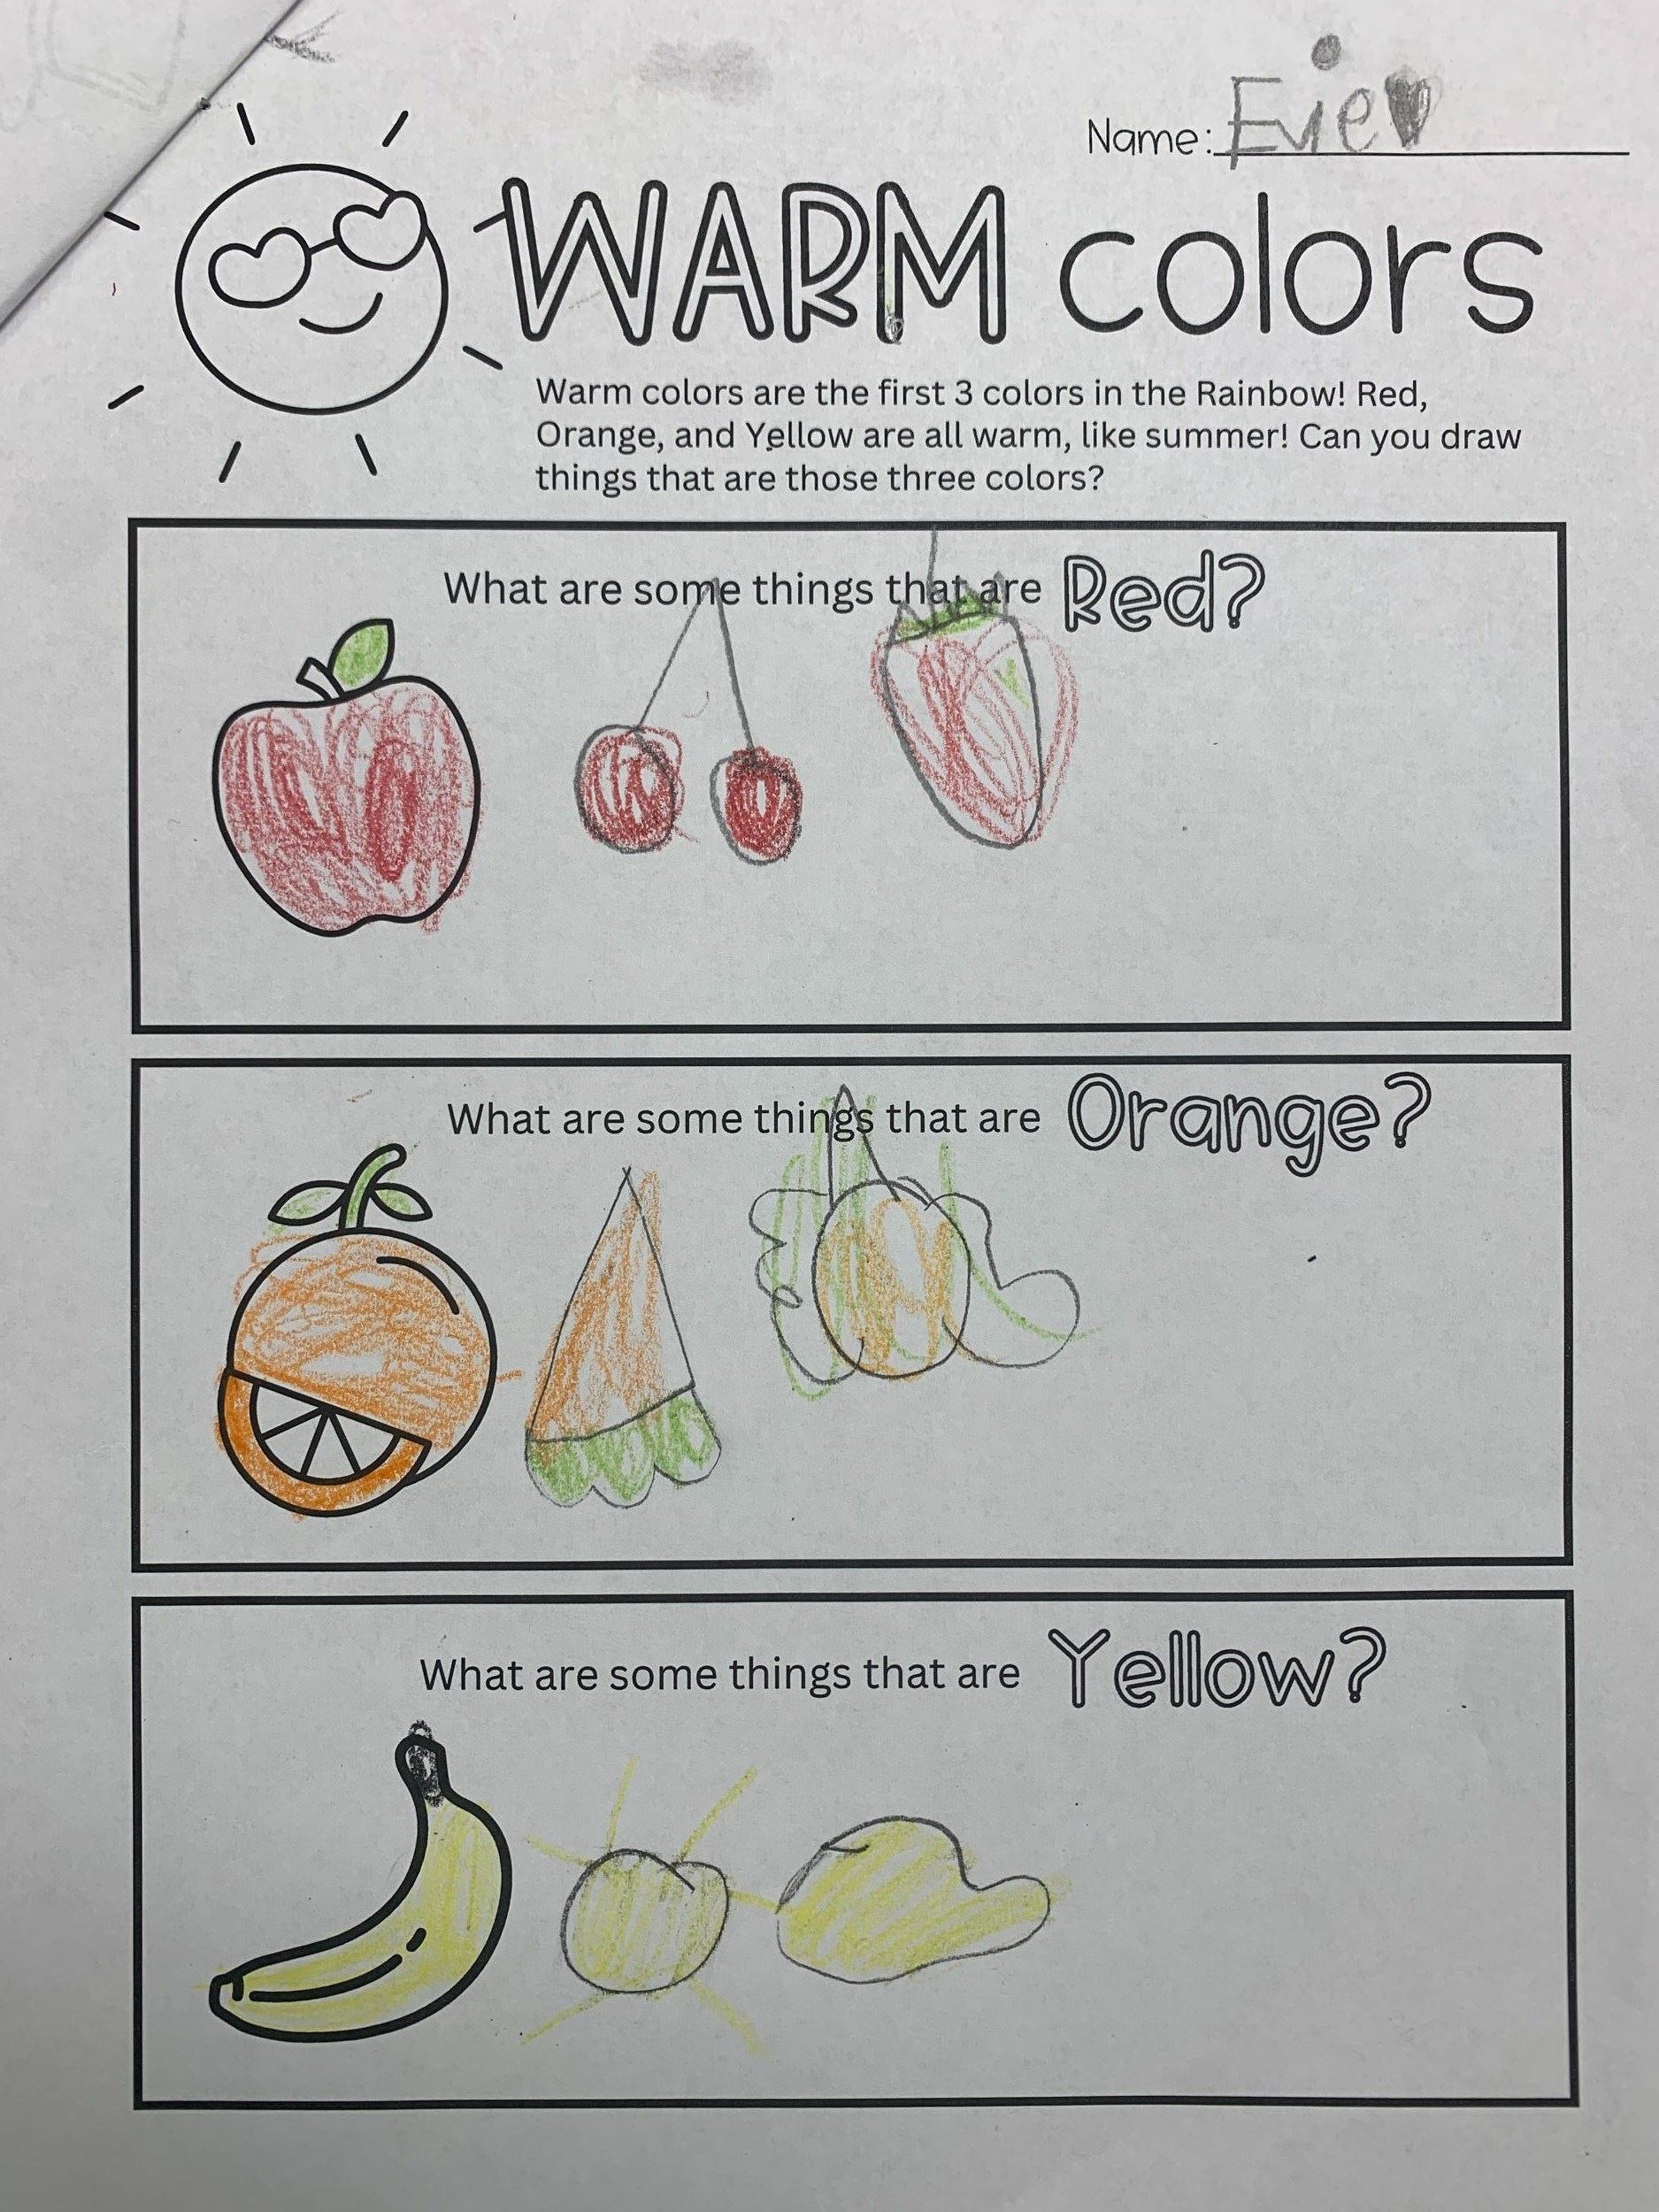 Name: Evie
WARM colors
Warm colors are the first 3 colors in the Rainbow! Red,
Orange, and Yellow are all warm, like summer! Can you draw
things that are those three colors?
What are some things that are Red?
What are some things that are Orange?
What are some things that are Yellow?